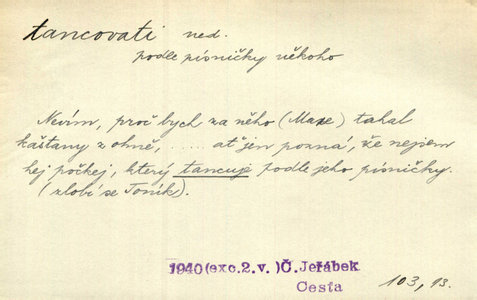 tancovati ned.
podle písničky někoho
Nevím, proč bych za něho (Maxe) tahal
kaštany z ohně, ..... ať jen pozná, že nejsem
hej počkej, který tancuje podle jeho písničky.
(zlobí se Toník).
1940 (exc. 2. v.) Č. Jeřábek
Cesta
103, 13.